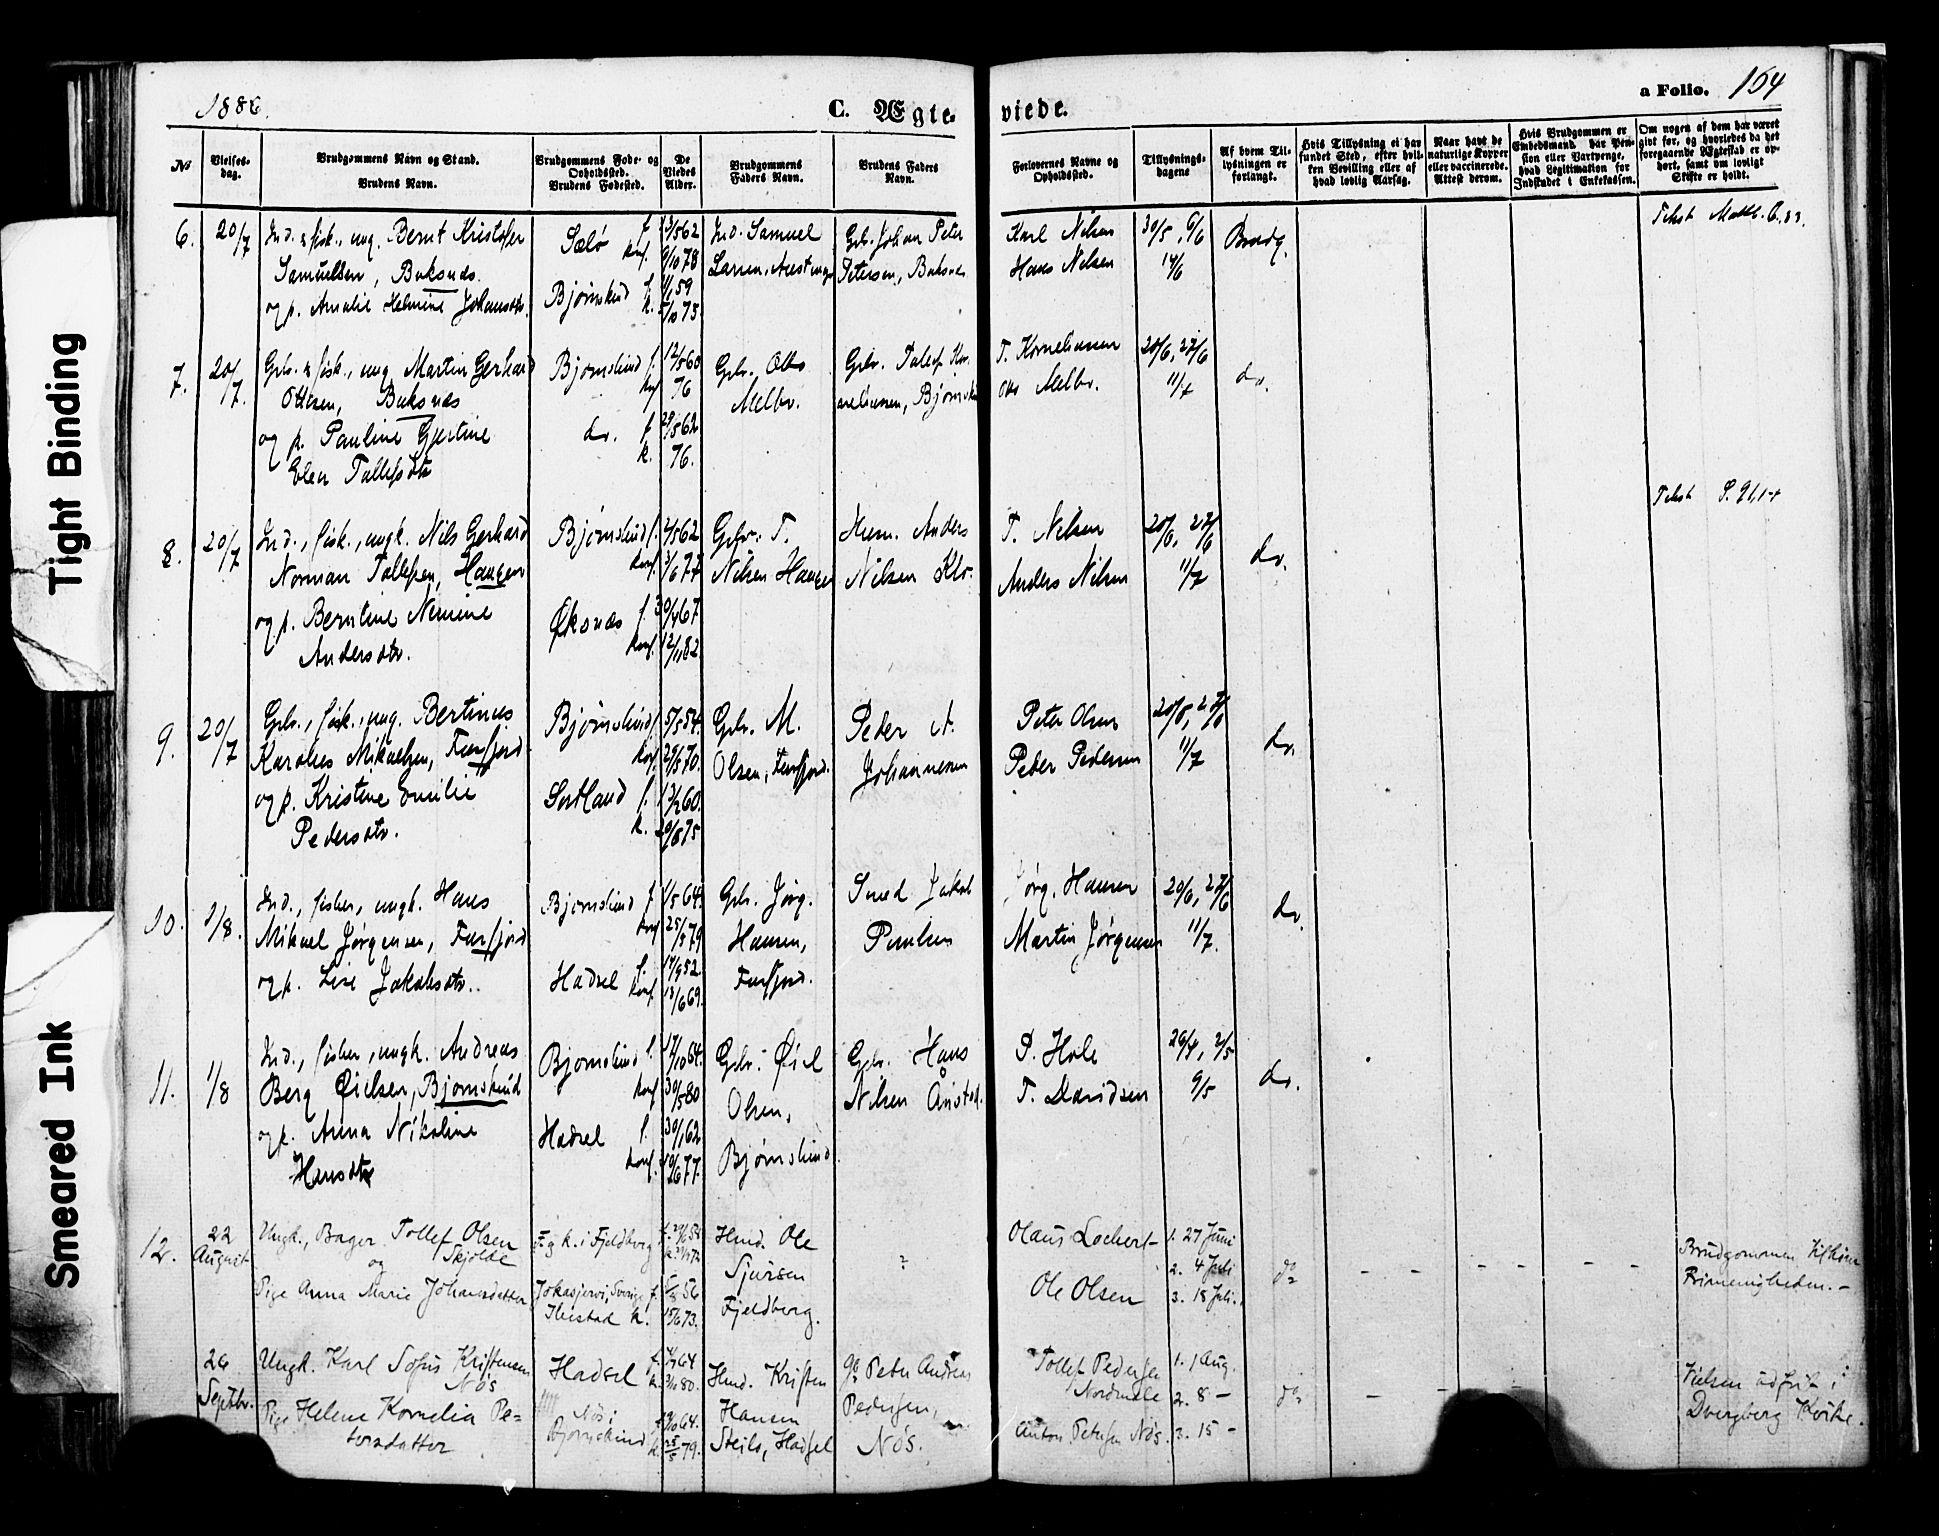 1886.
C. Ægte-
viede.
a Folio. 164
No
Vielses-
dag.
Brudgommens Navn og Stand.
Brudens Navn.
Brudgommens Føde- og
Opholdssted.
Brudens Fødested.
De
Viedes
Alder.
Brudgommens
Faders Navn.
Brudens Faders
Navn.
Forlovernes Navne og
Opholdssted.
Tillysnings-
dagene
Af hvem Til-
lysningen er
forlangt.
Hvis Tillysning ei har
fundet Sted, efter hvil-
ken Bevilling eller af
hvad lovlig Aarsag.
Naar havt de
naturlige Kopper
eller vaccinerede.
Attest derom.
Hvis Brudgommen er
Embedsmand har Pen-
sion eller Vartpenge,
hvad Legitimation for
Indskudet i Enkekassen.
Om nogen af dem har været
gift før, og hvorledes da det
foregaaende Ægteskab er op-
hørt, samt om lovligt
Skifte er holdt.
6. 20/7 Ind. & fisk., ung. Bernt Kristofer
Samuelsen, Buksnæs
og p. Amalie Helmine Johansdtr.
Sælø f.
konf. 9/10 78
Bjørnskind f. 59
k. 75
Ind. Samuel
Larsen,
Gbr. Johan Peter
Petersen, Buksnæs
Karl Nilsen
Hans Nilsen
30/5, 6/6
14/6
Brudg.
Tekst Matth. 6,33
7. 20/7. Gbr. & fisk., ung. Martin Gerhard
Ottesen, Buksnæs
og p. Pauline Gjertine
Elen Tollefsdtr
Bjørnskind f. 12/5 60
konf 76
do. f 29/5 62
k. 76.
Gbr. Otto
Melbo.
Gbr. Tollef Kor-
neliussen, Bjørnskind
T. Korneliussen
Otto Melbo.
20/6, 27/6
11/7
do.
8. 20/7 Ind., fisk., ungk. Nils Gerhard
Norman Tollefsen, Haugen
og p. Berntine Nimine
Andersdtr.
Bjørnskind f. 2/5 62
konf. 77
Øksnæs f. 30/4 67
konf. 12/11 82
Gbr. T.
Nilsen Haugen
Husm. Anders
Nilsen Klo.
T. Nilsen
Anders Nilsen
20/6, 27/6
11/7
do.
Tekst S. 91,1-4
9. 20/7 Gbr., fisk., ung. Bertinus
Karolius Mikalsen, Forfjord
og p. Kristine Emilie
Pedersdtr.
Bjørnskind f. 5/5 54.
konf. 29/5 70.
Sortland f. 60.
k. 75
Gbr. M.
Olsen, Forfjord.
Peder A.
Johannesen
Peter Olsen
Peder Pedersen
20/6, 27/6
11/7
do.
10. 1/8. Ind., fisker, ungk. Hans
Mikael Jørgensen, Forfjord
og p. Lise Jakobsdtr.
Bjørnskind f. 1/5 64.
konf 25/5 79
Hadsel f. 17/9 52.
konf. 13/6 69.
Gbr. Jørg.
Hansen,
Forfjord.
Smed Jakob
Paulsen
Jørg. Hansen
Martin Jørgensen
20/6, 27/6
11/7.
do.
11. 1/8 Ind., fisker, ungk. Andreas
Berg Øielsen, Bjørnskind
og p. Anna Nikoline
Hansdtr
Bjørnskind f. 17/10 64.
konf 30/5 80
Hadsel f. 30/1 62
konf. 10/6 77.
Gbr. Øiel
Olsen,
Bjørnskind
Gbr. Hans
Nilsen Ånstad.
P. Hole
T. Davidsen
26/4, 2/5
9/5
do.
12. 22
August
Ungk., Bager Tollef Olsen
Skjolde
og
Pige Anna Marie Johansdatter
F. og k. i Fjeldberg
Jokasjervi, Sverige f. 56
Ibestad k. 15/6 73.
Husmd. Ole
Sjursen
Fjeldberg.
?
Olaus Lochert
Ole Olsen
1. 27 Juni
2. 4 Juli
3. 18 Juli.
do
- - - - - -
Brudgommen
Frimenigheden. -
26
Septbr.
Ungk. Karl Sofus Kristensen
Nøs
Pige Helene Kornelia Pe-
tersdatter
Hadsel f. 64
k. 80.
Nøs i
Bjørnskind f. 64.
k. 25/5 79.
Husmd. Kristen
Hansen
Steilo, Hadsel
Gbr Peter Andreas
Pedersen,
Nøs.
Tollef Pedersen
Nordmele
Anton Petersen Nøs.
1. 1 Aug.
2. 8 -
3. 15 -
do
- - - - -
Vielsen udført i
Dverberg Kirke.
Tight Binding
Smeared Ink